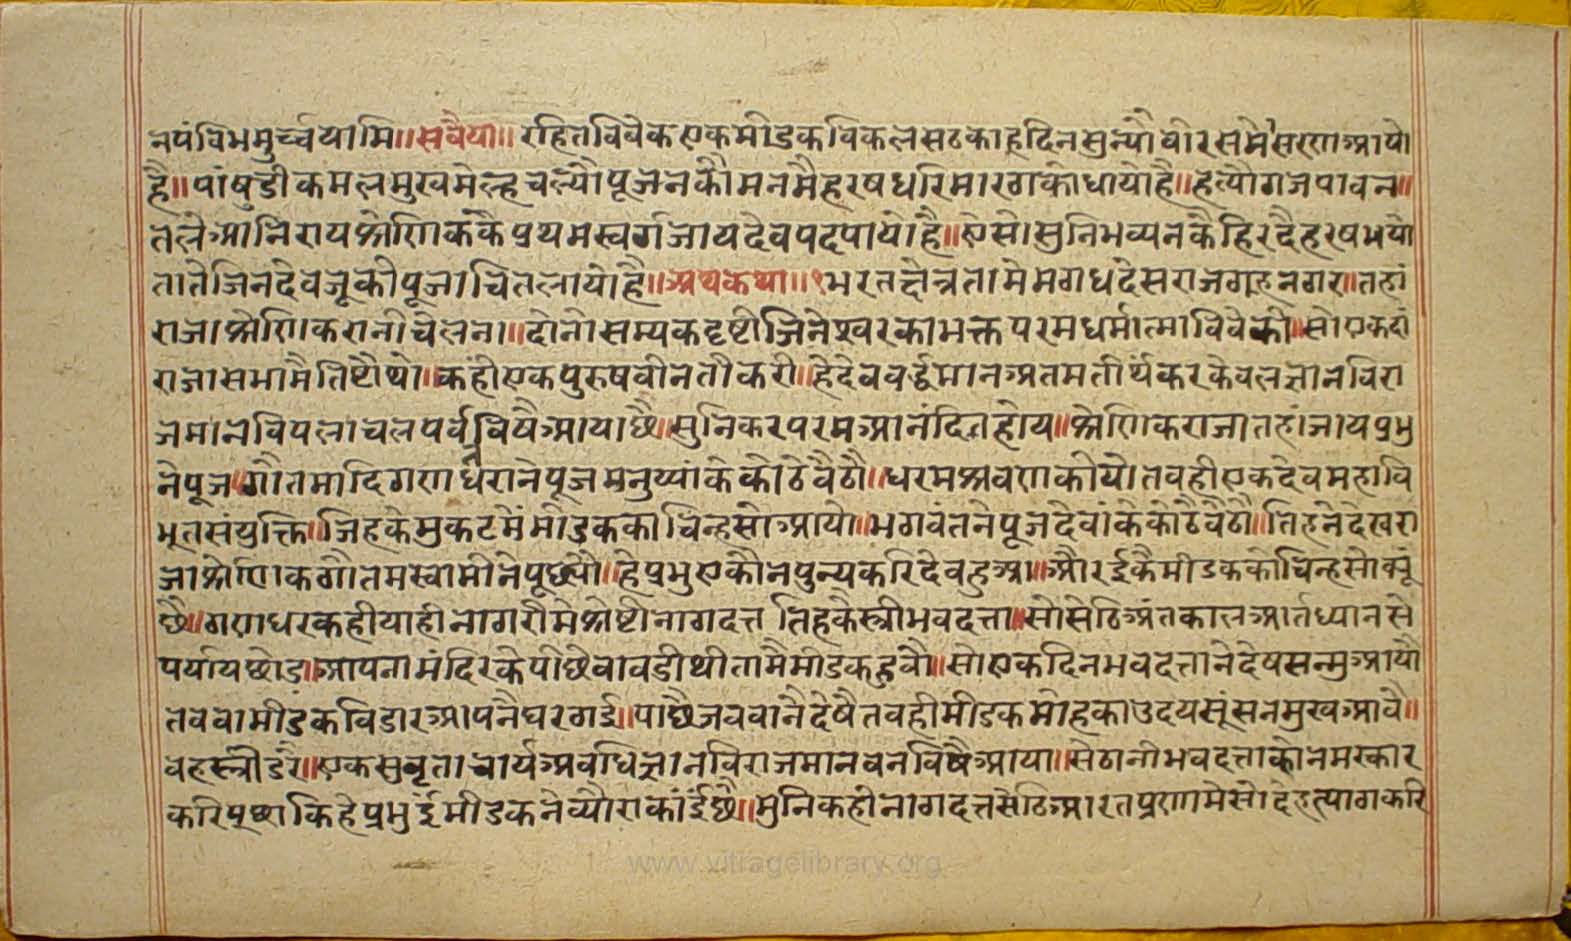 नपंविभमुर्च्चयामि॥सवैया॥ रहितविवेकएकमीडकविकलसठकाहूदिनसुन्यौवीरसमेसरणआयो
है॥पांषुडीकमलमुखमेल्हचल्यौपूजनकौमनमैहरषधरिमारगकोधायोहै॥हत्यौगजपावन॥
तलेआनिरायश्रेणिककैप्रथमस्वर्गजायदेवपदपायोहै॥ऐसोसुनिभव्यनकैहिरदैहरषभयौ
तातेजिनदेवजूकीपूजाचितलायोहै॥अथकथा॥१भरतक्षेत्रतामेमगधदेसराजगृहनगर॥तहां
राजाश्रेणिकरानीचेलना॥दोनोसम्यकदृष्टीजिनेश्वरकाभक्तपरमधर्मात्माविवेकी॥सोएकदां
राजासभामैतिष्टैथो॥कहींएकपुरुषवीनतीकरी॥हेदेववर्द्धमानअतमतीर्थंकरकेवलज्ञानविरा
जमानविपलाचलपर्वतविषैआयाछै॥सुनिकरपरमआनंदितहोय॥श्रेणिकराजातहांजायप्रभु
नेपूज॥गौतमादिगणधरानेपूजमनुष्यांकेकोठेबैठौ॥धरमश्रवणकीयोतवहीएकदेवमहावि
भूतसंयुक्ति॥जिहकेमुकटमेंमीडककाचिन्हसोआयो॥भगवंतनेपूजदेवांकेकोठैबैठौ॥तिहनेदेखरा
जाश्रेणिकगौतमस्वामीनेपूछ्यौ॥हेप्रभुएकौनपुन्यकरिदेवहुआ॥औरईकैमीडककोचिन्हसोक्यूं
छै॥गणधरकहीयाहीनागरीमेश्रेष्टीनागदत्त तिहकैस्त्रीभवदत्ता॥सोसेठिअंतकालआर्तध्यानसे
पर्यायछोडा॥आपनामंदिरकेपीछैवावडीथीतामैमीडकहुवौ॥सोएकदिनभवदत्तानेदेषसन्मुआयौ
तबवामीडकविडारआपनैघरगई॥पाछैजबवानैदेषैतवहीमीडकमोहकाउदयसूंसनमुखआवै॥
वहस्त्रीडरै॥एकसुवृताचार्यअवधिज्ञानविराजमानवनविषैआया॥सेठानीभवदत्ताकोनमस्कार
करिपूछाकिहेप्रभुईमीडकनेव्यौराकांईछै॥मुनिकहीनागदत्तसेठिआरतप्रणामेसोदेहत्यागकरि
www.vitragelibrary.org